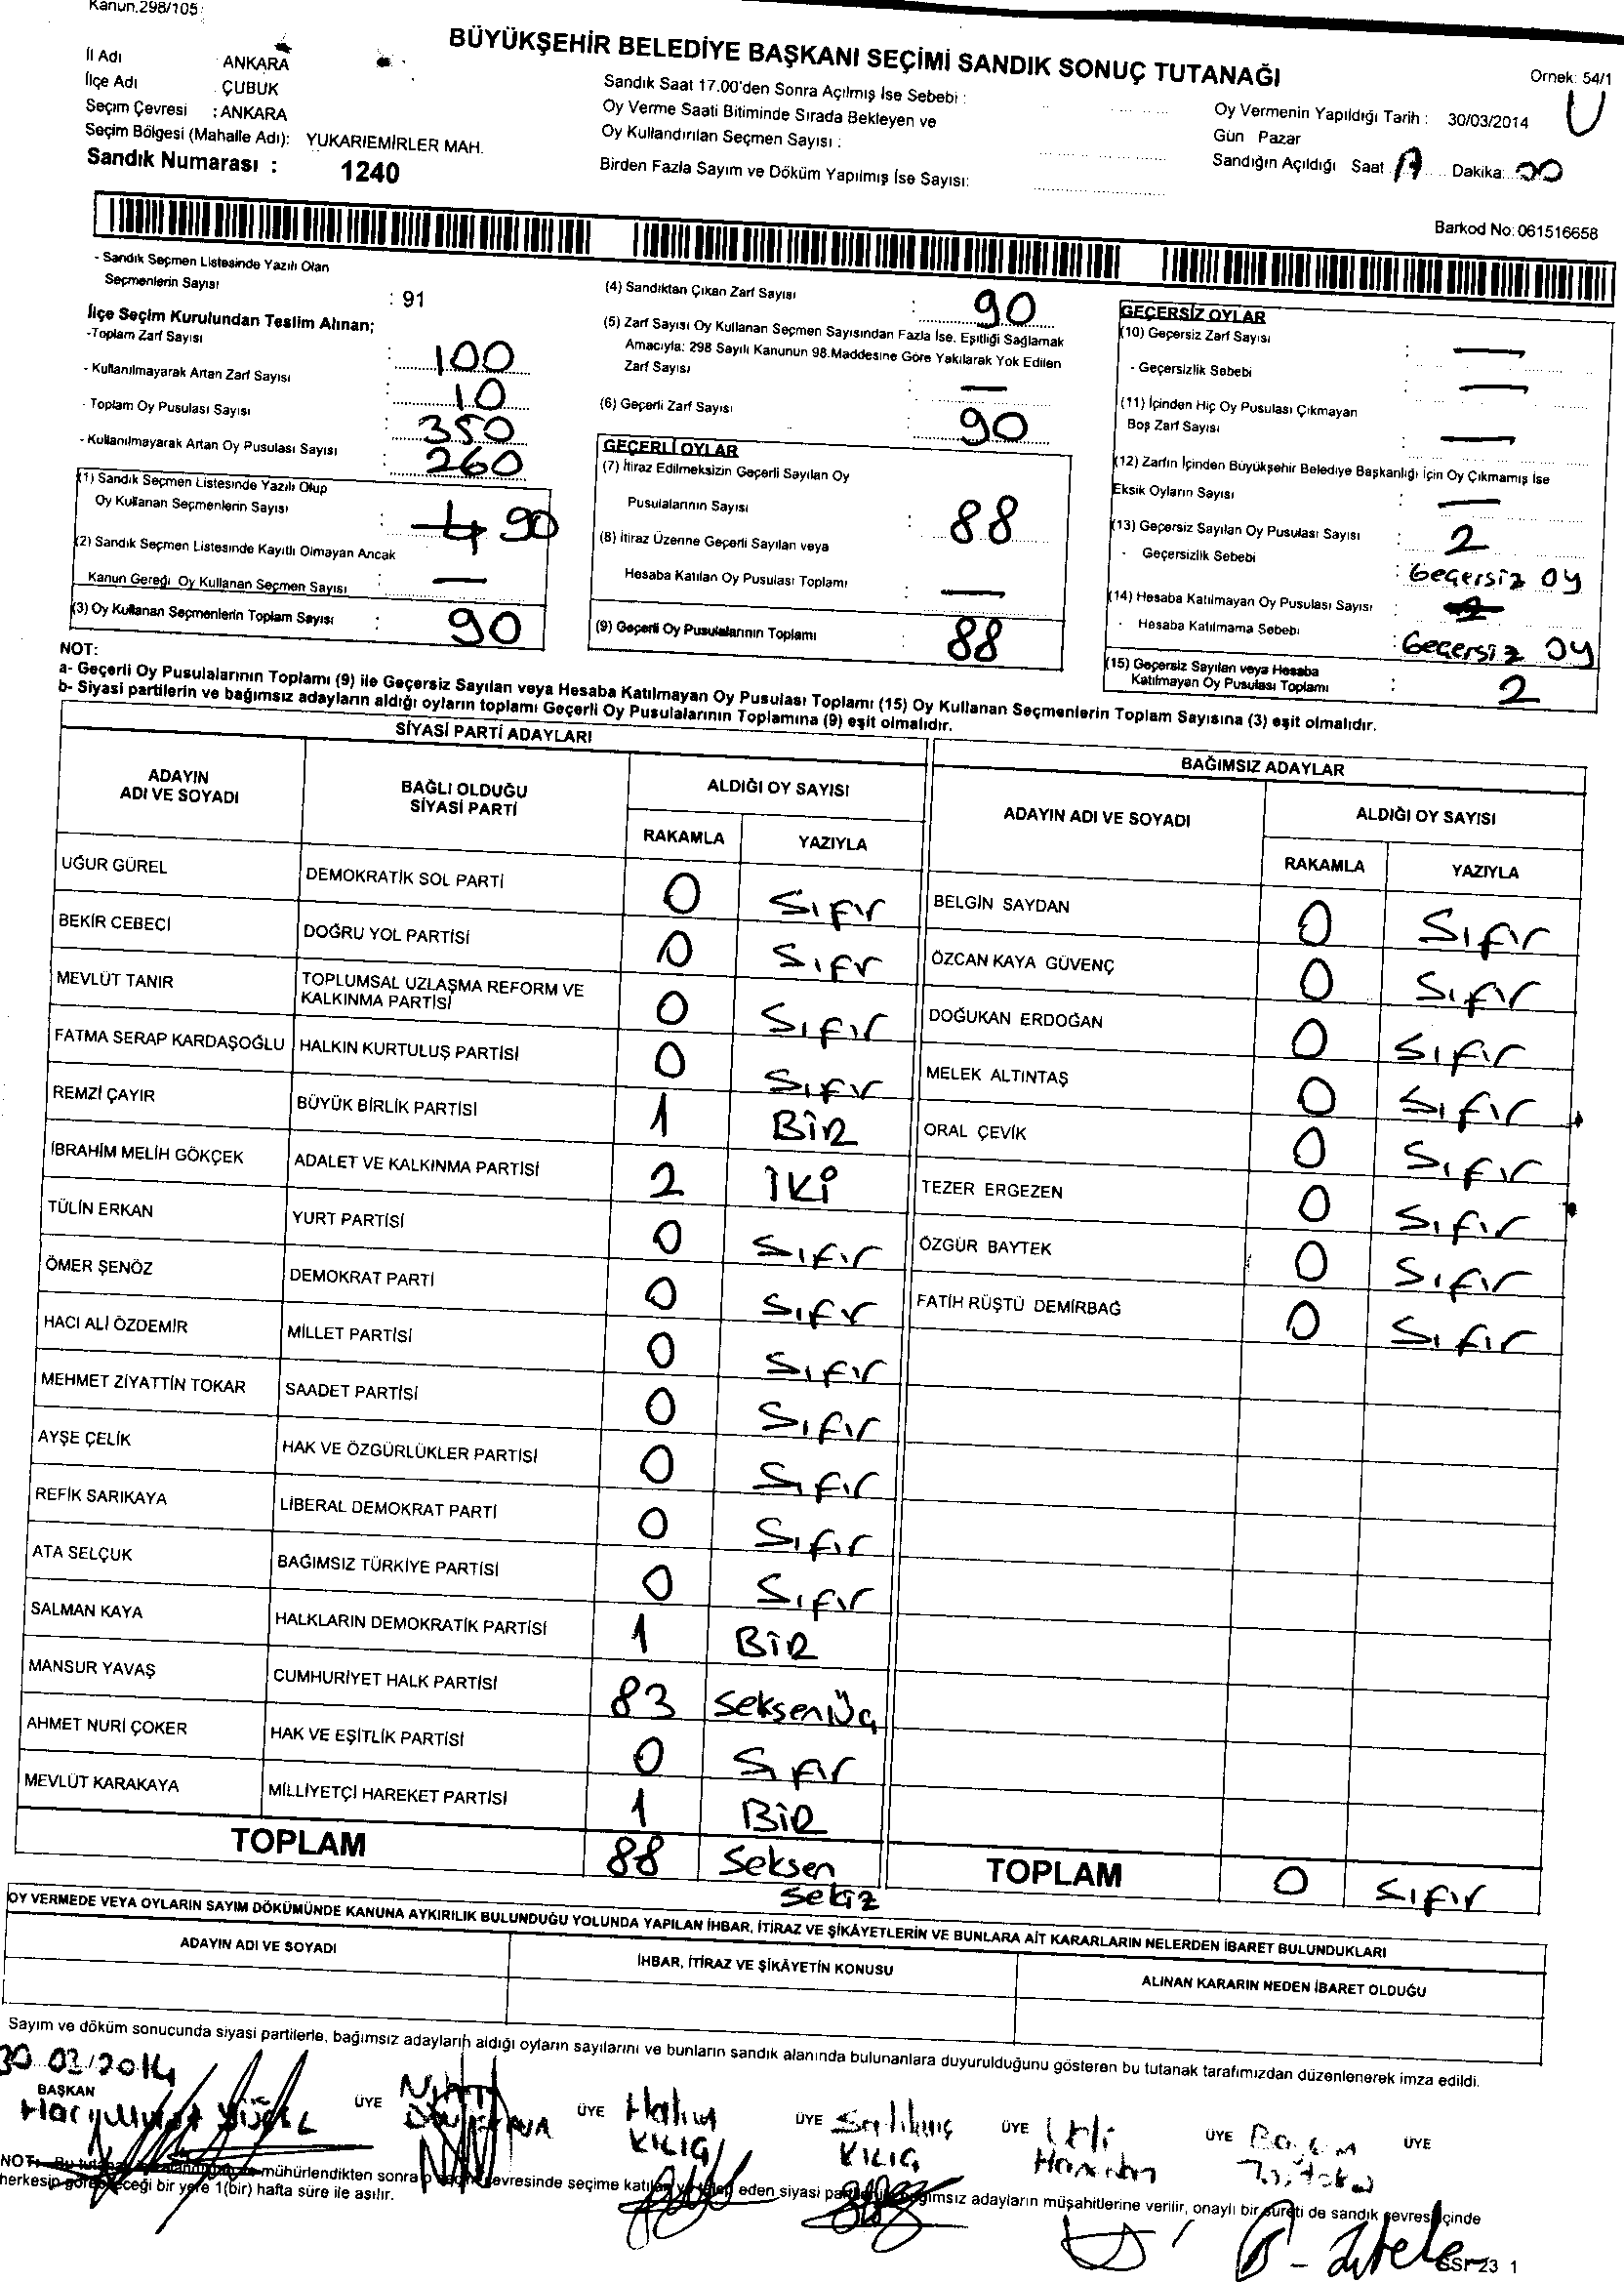 Kanun.298/105:
BÜYÜKŞEHİR BELEDİYE BAŞKANI SEÇİMİ SANDIK SONUÇ TUTANAĞI
Örnek: 54/1
İl Adı ANKARA
İlçe Adı ÇUBUK
Seçim Çevresi : ANKARA
Seçim Bölgesi (Mahalle Adı): YUKARIEMİRLER MAH.
Sandık Numarası : 1240
Sandık Saat 17.00'den Sonra Açılmış İse Sebebi :
Oy Verme Saati Bitiminde Sırada Bekleyen ve
Oy Kullandırılan Seçmen Sayısı :
Birden Fazla Sayım ve Döküm Yapılmış İse Sayısı:
Oy Vermenin Yapıldığı Tarih : 30/03/2014
Gün Pazar
Sandığın Açıldığı Saat Dakika: 00
Barkod No: 061516658
- Sandık Seçmen Listesinde Yazılı Olan
Seçmenlerin Sayısı : 91
İlçe Seçim Kurulundan Teslim Alınan;
-Toplam Zarf Sayısı : 100
- Kullanılmayarak Artan Zarf Sayısı : 10
- Toplam Oy Pusulası Sayısı : 350
- Kullanılmayarak Artan Oy Pusulası Sayısı : 260
(1) Sandık Seçmen Listesinde Yazılı Olup
Oy Kullanan Seçmenlerin Sayısı : 90
(2) Sandık Seçmen Listesinde Kayıtlı Olmayan Ancak
Kanun Gereği Oy Kullanan Seçmen Sayısı : —
(3) Oy Kullanan Seçmenlerin Toplam Sayısı : 90
(4) Sandıktan Çıkan Zarf Sayısı : 90
(5) Zarf Sayısı Oy Kullanan Seçmen Sayısından Fazla İse. Eşitliği Sağlamak
Amacıyla: 298 Sayılı Kanunun 98.Maddesine Göre Yakılarak Yok Edilen
Zarf Sayısı : —
(6) Geçerli Zarf Sayısı : 90
GEÇERLİ OYLAR
(7) İtiraz Edilmeksizin Geçerli Sayılan Oy
Pusulalarının Sayısı : 88
(8) İtiraz Üzerine Geçerli Sayılan veya
Hesaba Katılan Oy Pusulası Toplamı : —
(9) Geçerli Oy Pusulalarının Toplamı : 88
GEÇERSİZ OYLAR
(10) Geçersiz Zarf Sayısı : —
- Geçersizlik Sebebi : —
(11) İçinden Hiç Oy Pusulası Çıkmayan
Boş Zarf Sayısı : —
(12) Zarfın İçinden Büyükşehir Belediye Başkanlığı İçin Oy Çıkmamış İse
Eksik Oyların Sayısı : —
(13) Geçersiz Sayılan Oy Pusulası Sayısı : 2
- Geçersizlik Sebebi : Geçersiz oy
(14) Hesaba Katılmayan Oy Pusulası Sayısı :
- Hesaba Katılmama Sebebi : Geçersiz oy
(15) Geçersiz Sayılan veya Hesaba
Katılmayan Oy Pusulası Toplamı : 2
NOT:
a- Geçerli Oy Pusulalarının Toplamı (9) ile Geçersiz Sayılan veya Hesaba Katılmayan Oy Pusulası Toplamı (15) Oy Kullanan Seçmenlerin Toplam Sayısına (3) eşit olmalıdır.
b- Siyasi partilerin ve bağımsız adayların aldığı oyların toplamı Geçerli Oy Pusulalarının Toplamına (9) eşit olmalıdır.
SİYASİ PARTİ ADAYLARI
ADAYIN ADI VE SOYADI BAĞLI OLDUĞU SİYASİ PARTİ ALDIĞI OY SAYISI
RAKAMLA YAZIYLA
UĞUR GÜREL DEMOKRATİK SOL PARTİ 0 Sıfır
BEKİR CEBECİ DOĞRU YOL PARTİSİ 0 Sıfr
MEVLÜT TANIR TOPLUMSAL UZLAŞMA REFORM VE KALKINMA PARTİSİ 0 Sıfır
FATMA SERAP KARDAŞOĞLU HALKIN KURTULUŞ PARTİSİ 0 Sıfır
REMZİ ÇAYIR BÜYÜK BİRLİK PARTİSİ 1 BİR
İBRAHİM MELİH GÖKÇEK ADALET VE KALKINMA PARTİSİ 2 İKİ
TÜLİN ERKAN YURT PARTİSİ 0 Sıfır
ÖMER ŞENÖZ DEMOKRAT PARTİ 0 Sıfır
HACI ALİ ÖZDEMİR MİLLET PARTİSİ 0 Sıfır
MEHMET ZİYATTİN TOKAR SAADET PARTİSİ 0 Sıfır
AYŞE ÇELİK HAK VE ÖZGÜRLÜKLER PARTİSİ 0 Sıfır
REFİK SARIKAYA LİBERAL DEMOKRAT PARTİ 0 Sıfır
ATA SELÇUK BAĞIMSIZ TÜRKİYE PARTİSİ 0 Sıfır
SALMAN KAYA HALKLARIN DEMOKRATİK PARTİSİ 1 BİR
MANSUR YAVAŞ CUMHURİYET HALK PARTİSİ 83 SeksenÜç
AHMET NURİ ÇOKER HAK VE EŞİTLİK PARTİSİ 0 Sıfır
MEVLÜT KARAKAYA MİLLİYETÇİ HAREKET PARTİSİ 1 BİR
TOPLAM 88 Seksen Sekiz
BAĞIMSIZ ADAYLAR
ADAYIN ADI VE SOYADI ALDIĞI OY SAYISI
RAKAMLA YAZIYLA
BELGİN SAYDAN 0 Sıfır
ÖZCAN KAYA GÜVENÇ 0 Sıfır
DOĞUKAN ERDOĞAN 0 Sıfır
MELEK ALTINTAŞ 0 Sıfır
ORAL ÇEVİK 0 Sıfır
TEZER ERGEZEN 0 Sıfır
ÖZGÜR BAYTEK 0 Sıfır
FATİH RÜŞTÜ DEMİRBAĞ 0 Sıfır
TOPLAM 0 Sıfır
OY VERMEDE VEYA OYLARIN SAYIM DÖKÜMÜNDE KANUNA AYKIRILIK BULUNDUĞU YOLUNDA YAPILAN İHBAR, İTİRAZ VE ŞİKÂYETLERİN VE BUNLARA AİT KARARLARIN NELERDEN İBARET BULUNDUKLARI
ADAYIN ADI VE SOYADI İHBAR, İTİRAZ VE ŞİKÂYETİN KONUSU ALINAN KARARIN NEDEN İBARET OLDUĞU
Sayım ve döküm sonucunda siyasi partilerle, bağımsız adayların aldığı oyların sayılarını ve bunların sandık alanında bulunanlara duyurulduğunu gösteren bu tutanak tarafımızdan düzenlenerek imza edildi.
30.03/2014
BAŞKAN ÜYE ÜYE ÜYE ÜYE ÜYE ÜYE
Halim KILIÇ
KILIÇ
NOT: Bu mühürlendikten sonra çevresinde seçime katılan eden siyasi bağımsız adayların müşahitlerine verilir, onaylı bir sureti de sandık çevresi içinde
herkesin göreceği bir yere 1(bir) hafta süre ile asılır.
23 1